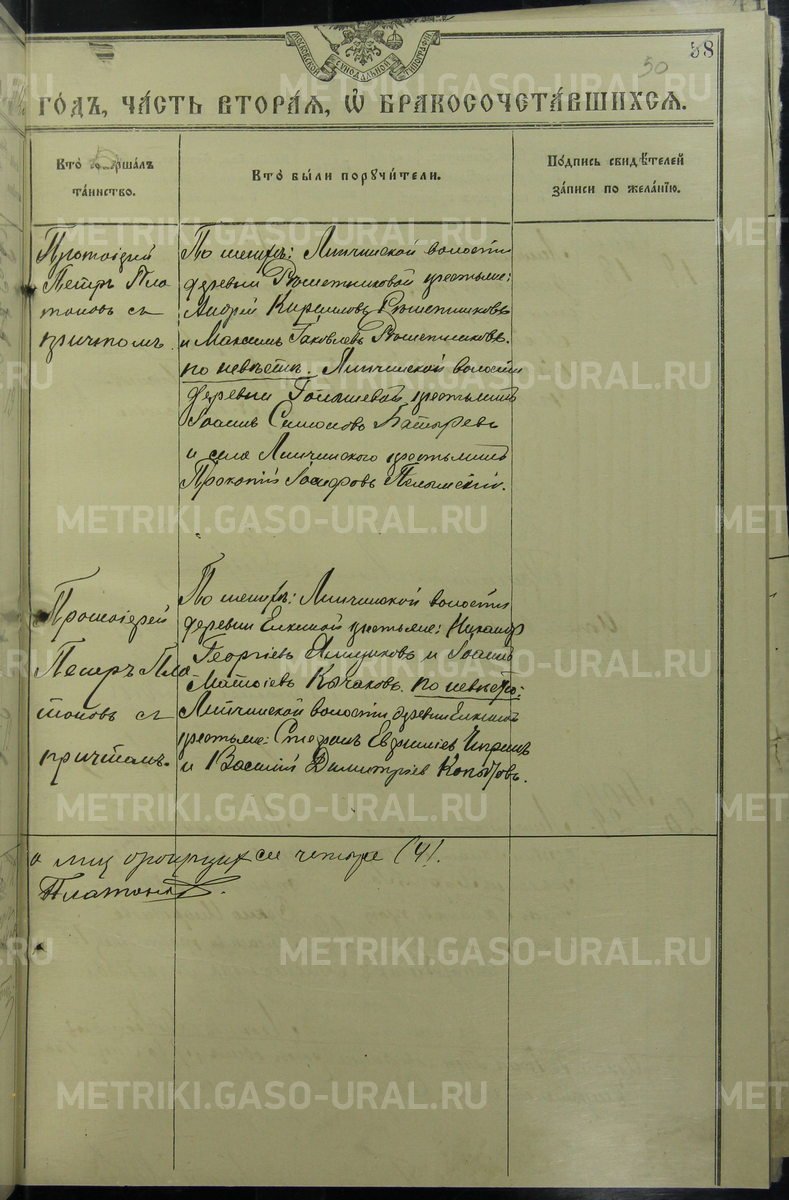 МОСКОВСКОЙ СѴНОДАЛЬНОЙ ТИПОГРАФІИ
38
50
ГОДЪ, ЧАСТЬ ВТОРАѦ, Ѡ БРАКОСОЧЕТАВШИХСѦ.
Кто совершалъ таинство.
Кто были поручители.
Подпись свидѣтелей записи по желанію.
Протоіерей
Петръ Пла
тоновъ съ
причтомъ.
По женихѣ: Липчинской волости
деревни Рѣшетниковой крестьяне:
Андрей Кириловъ Рѣшетниковъ
и Максимъ Іаковлевъ Рѣшетниковъ.
по невѣстѣ. Липчинской волости
деревни крестьянинъ
Іоаннъ Симоновъ Батыревъ
и села Липчинского крестьянинъ
Прокопій Іосифовъ Пелымскій.
Протоіерей
Петръ Пла
тоновъ съ
причтомъ.
По женихѣ: Липчинской волости
деревни Елкиной крестьяне: Никаноръ
Георгіевъ Ямщиковъ и Іоаннъ
Матѳіевъ Кочаковъ. по невѣстѣ:
Липчинской волости деревни Елкиной
крестьяне: Стефанъ
и Василій Димитріевъ
а лиц четыре (4).
Платоновъ.
METRIKI.GASO-URAL.RU